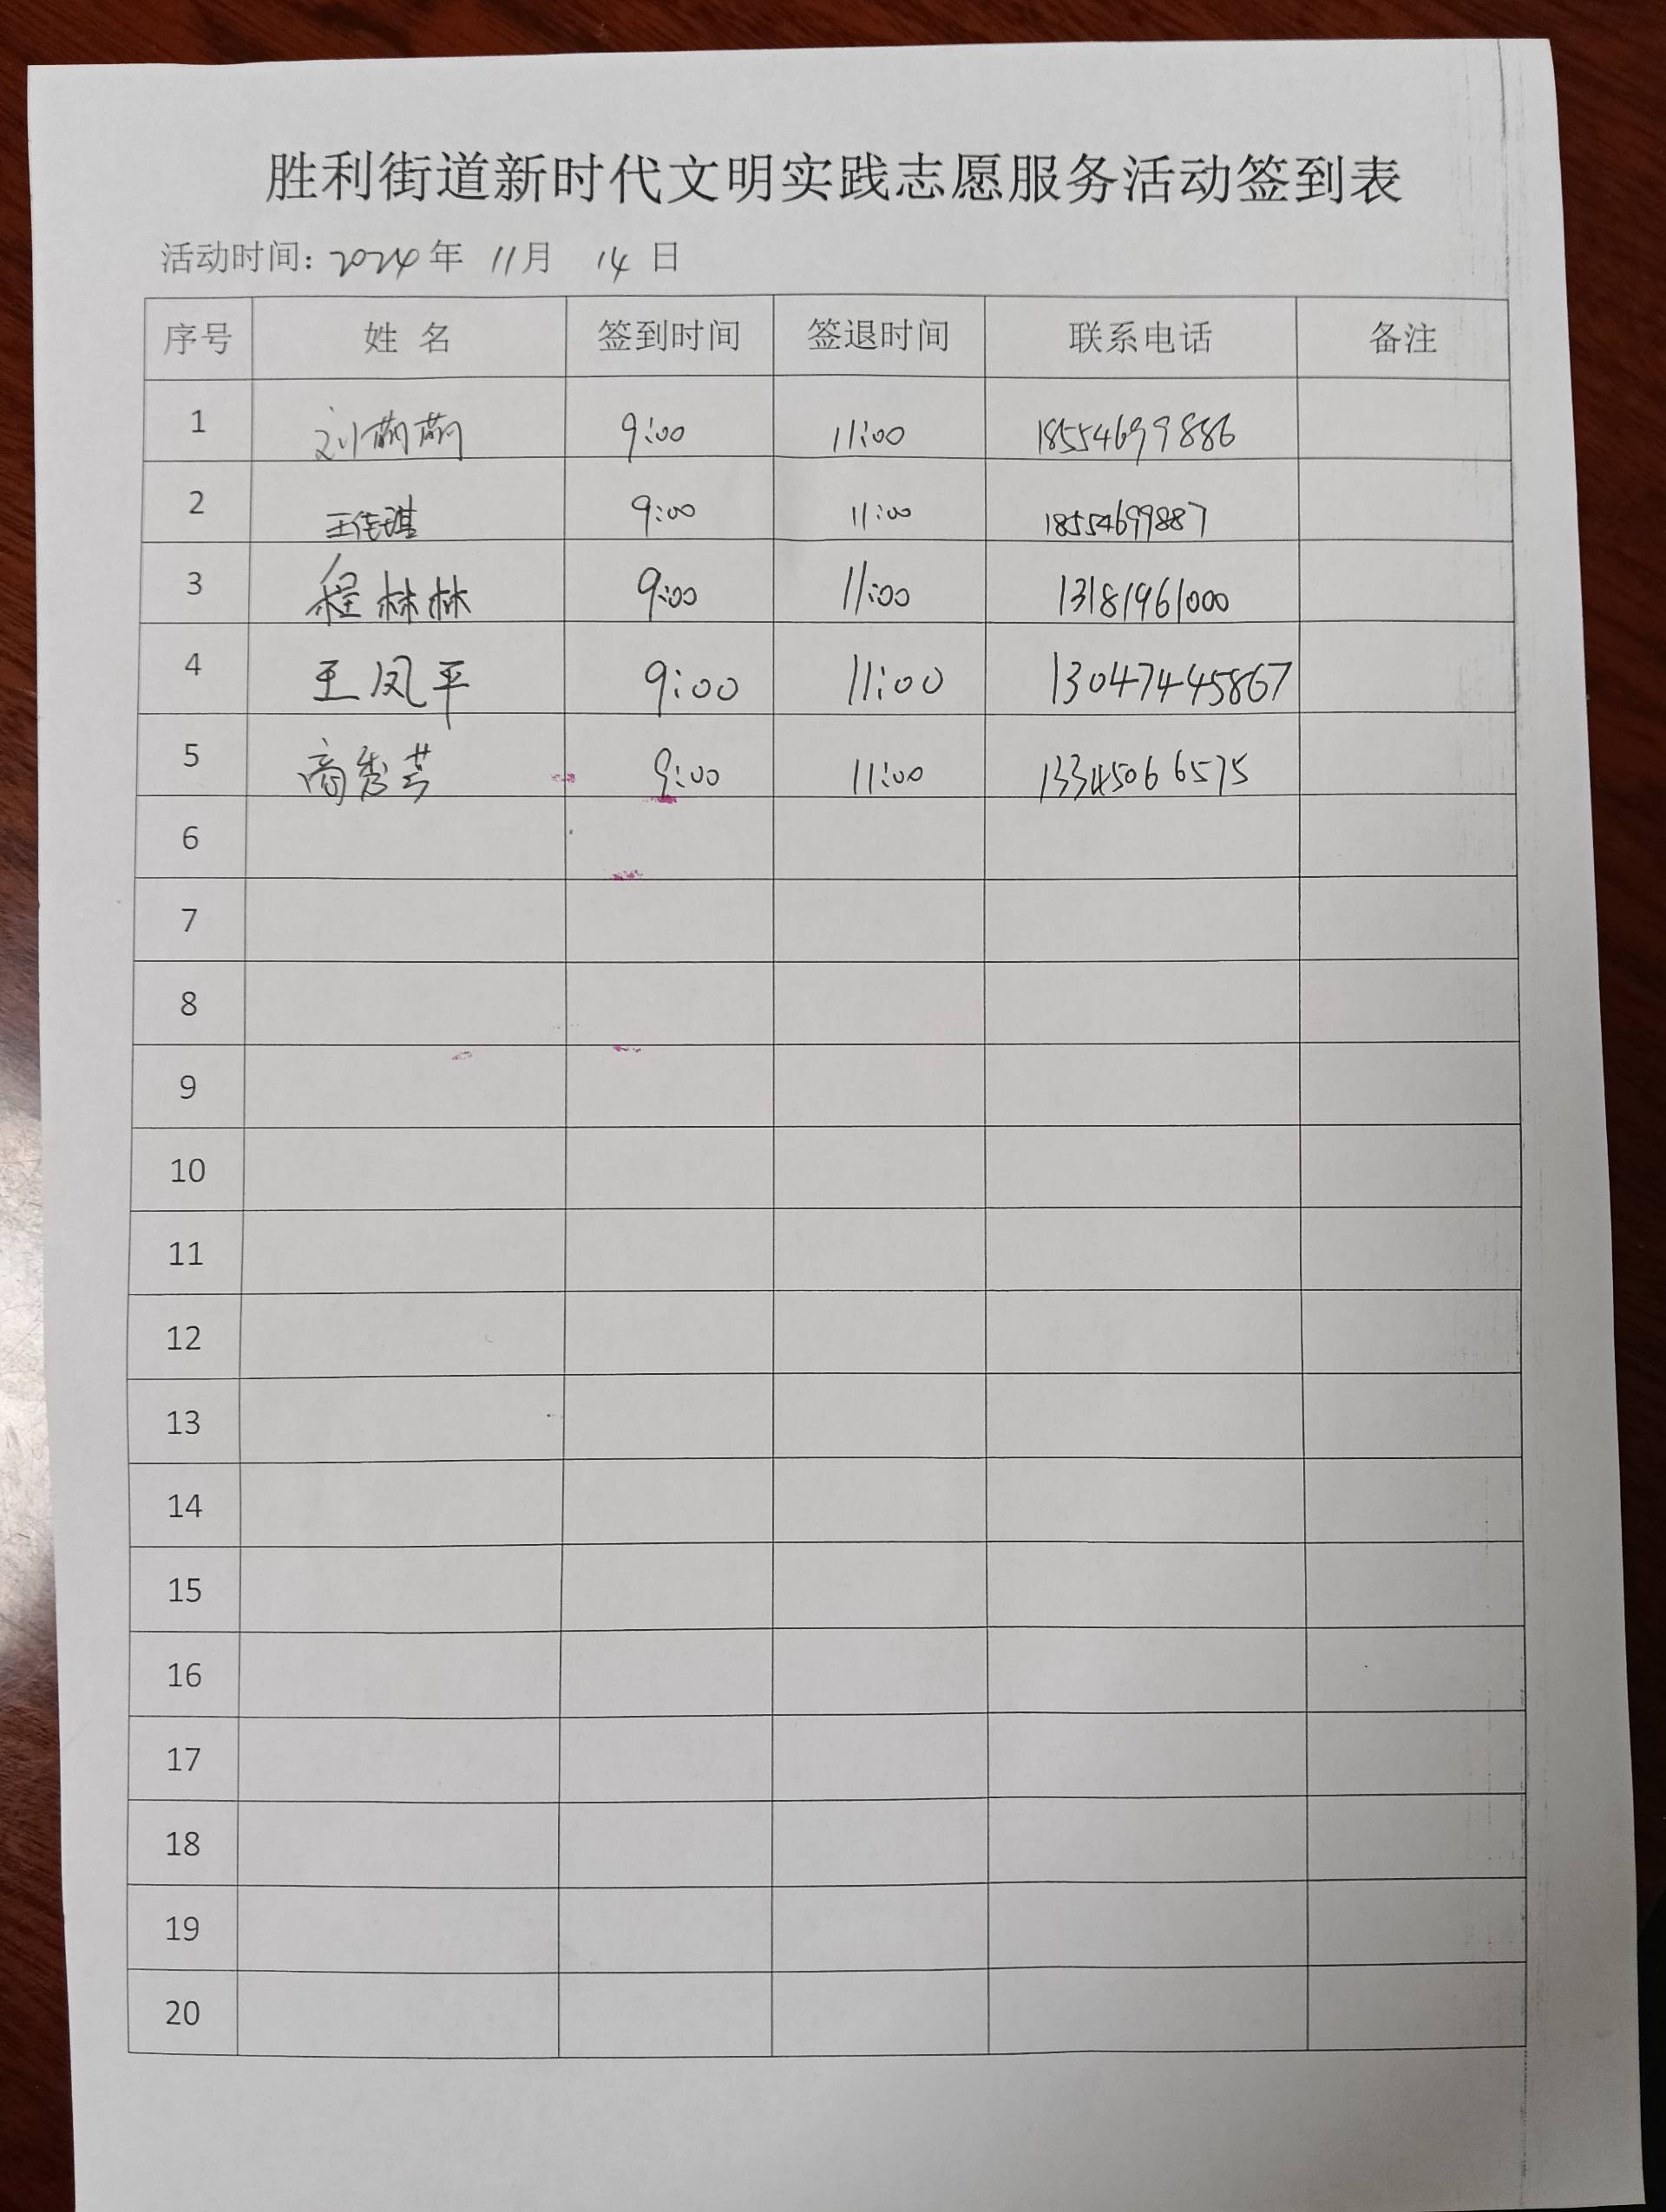 胜利街道新时代文明实践志愿服务活动签到表
活动时间: 2024 年 11月 14 日
序号 姓 名 签到时间 签退时间 联系电话 备注
1 刘萌萌 9:00 11:00 18554699886
2 9:00 11:00 18554699887
3 程林林 9:00 11:00 13181961000
4 王凤平 9:00 11:00 13047445867
5 商秀芸 9:00 11:00 13345066575
6
7
8
9
10
11
12
13
14
15
16
17
18
19
20